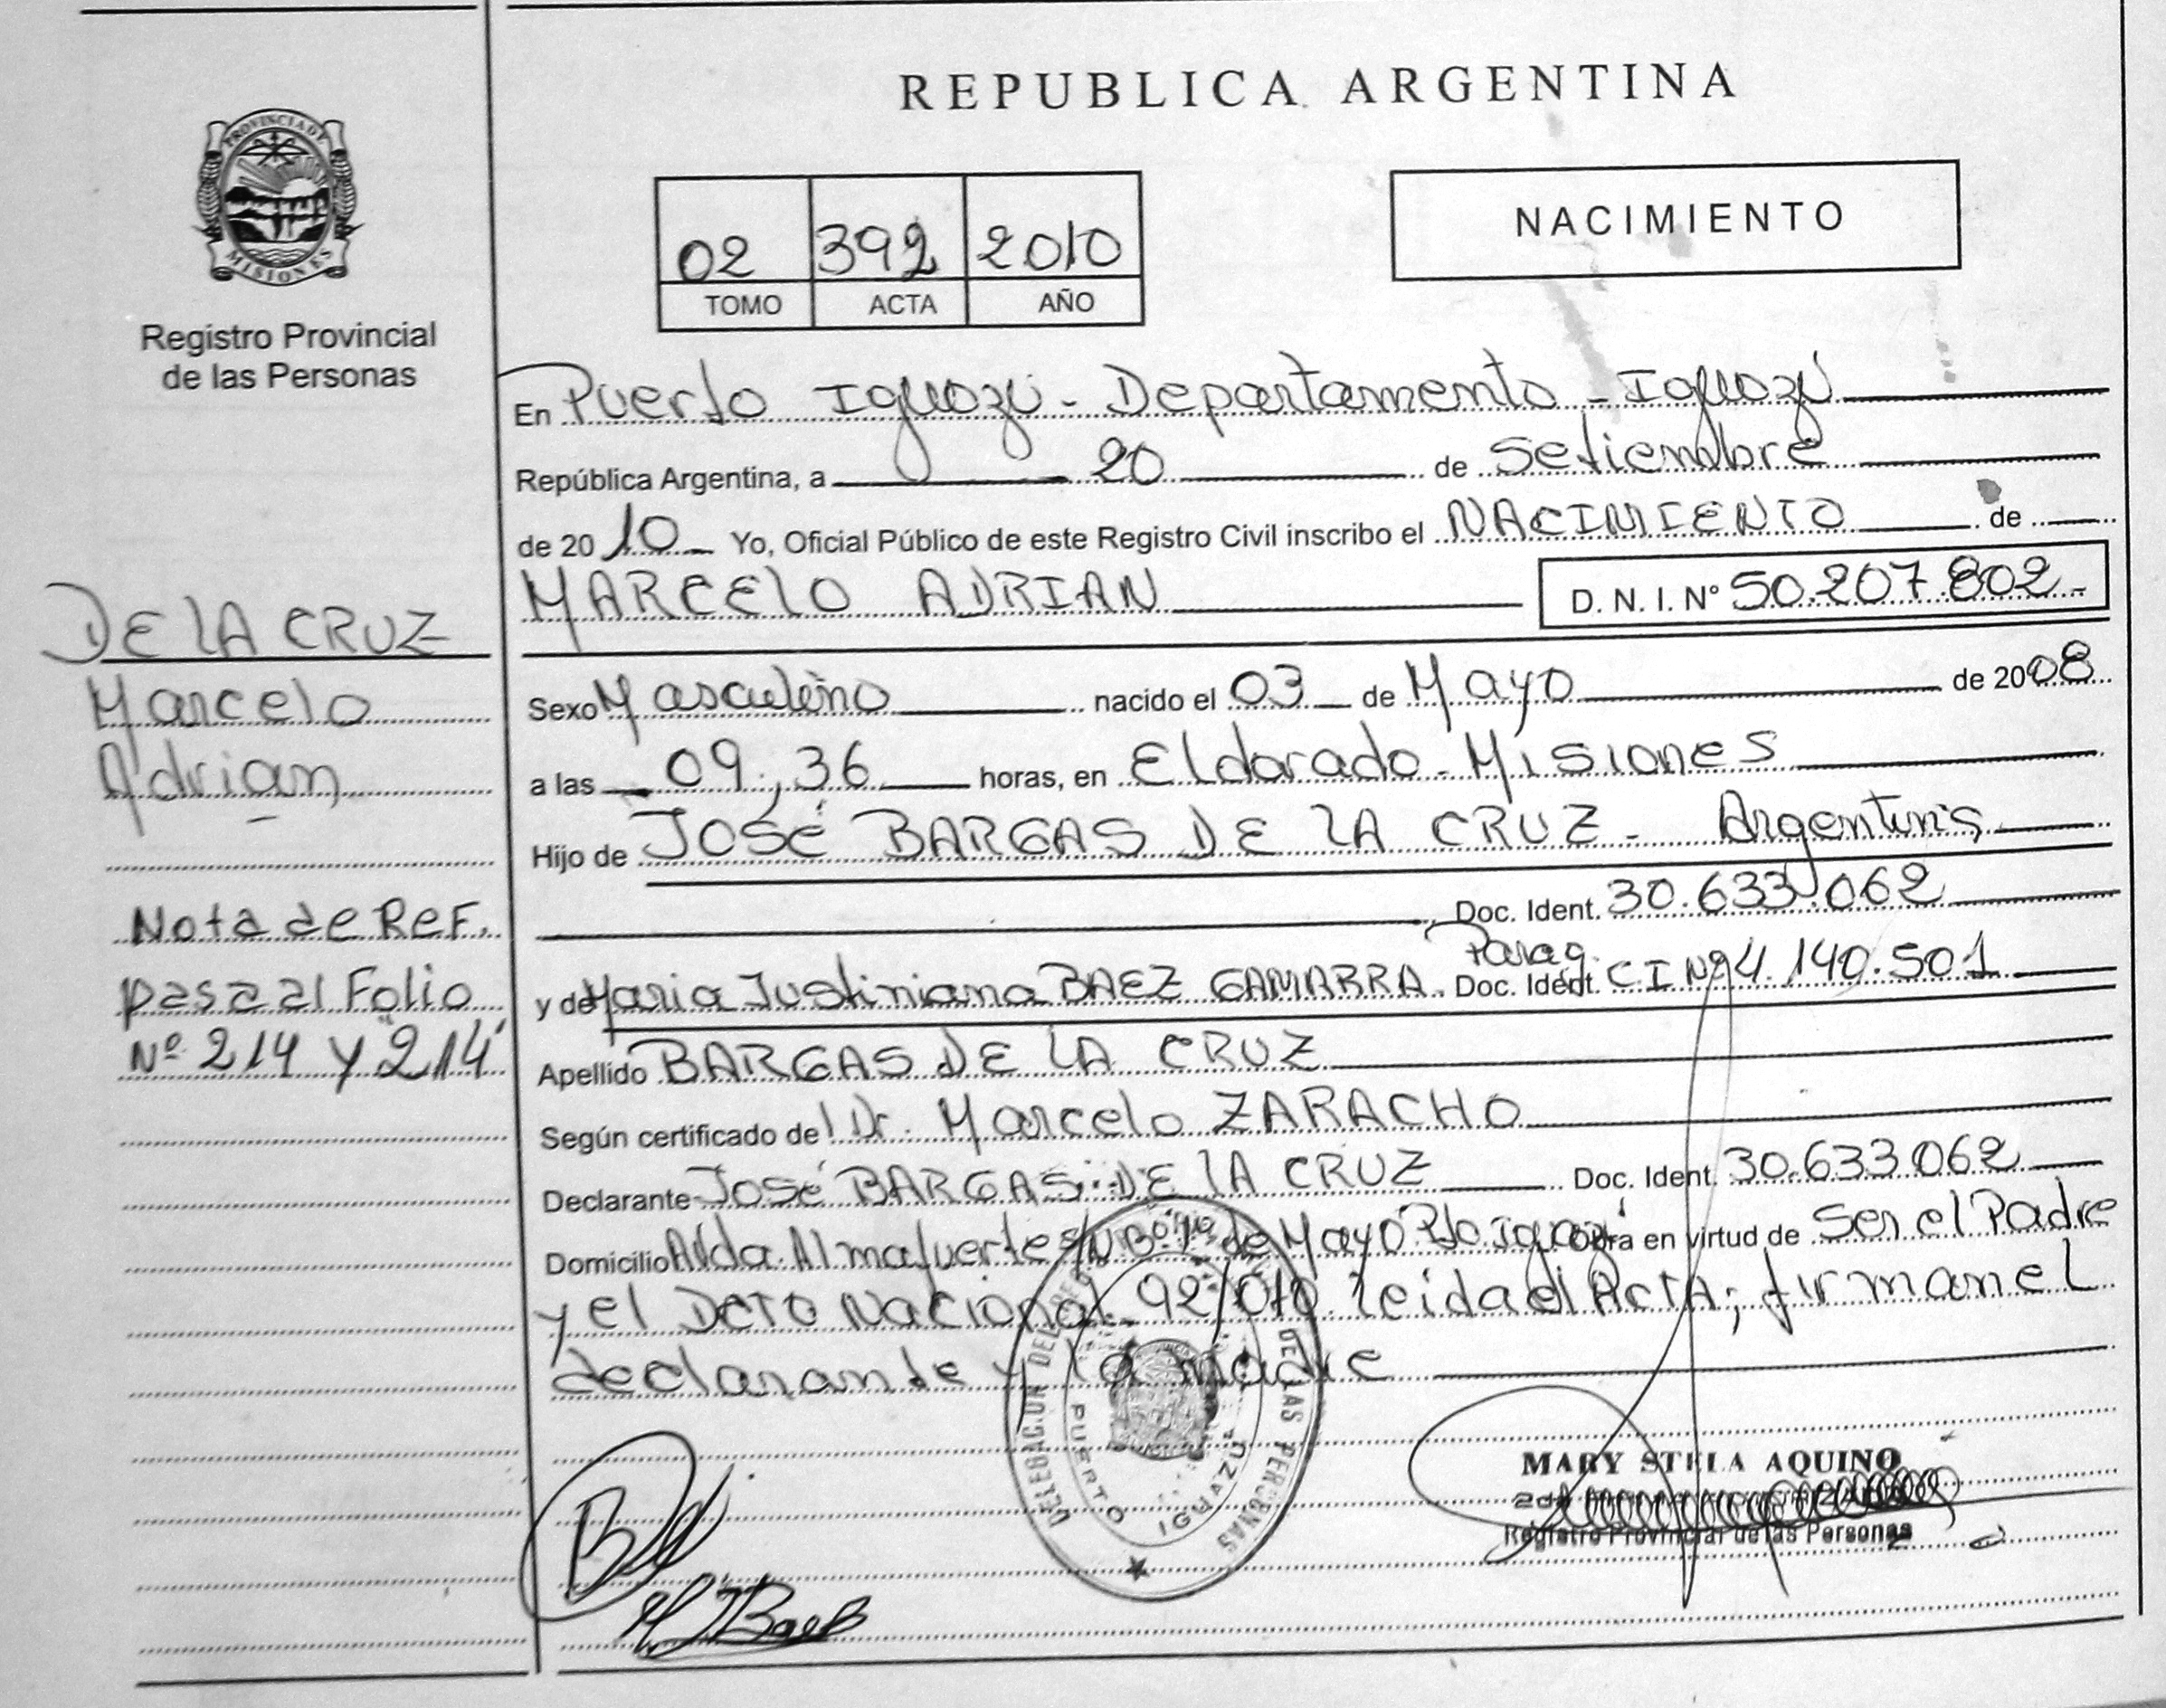 REPUBLICA ARGENTINA
PROVINCIA DE
MISIONES
Registro Provincial
de las Personas
02 392 2010
TOMO ACTA AÑO
NACIMIENTO
En Puerto Iguazú - Departamento - Iguazú
República Argentina, a 20 de Setiembre
de 2010 Yo, Oficial Público de este Registro Civil inscribo el NACIMIENTO de
MARCELO ADRIAN D. N. I. N° 50.207.802.-
DE LA CRUZ
Marcelo
Adrian
Sexo Masculino nacido el 03 de Mayo de 2008
a las 09,36 horas, en Eldorado - Misiones
Hijo de JOSÉ BARGAS DE LA CRUZ - Argentino
Doc. Ident. 30.633.062
Nota de Ref.
pasa al Folio
Nº 214 y 214
y de Maria Justiniana BAEZ GAMARRA. Doc. Ident. Parag. CI Nº 4.140.501
Apellido BARGAS DE LA CRUZ
Según certificado del Dr. Marcelo ZARACHO
Declarante JOSÉ BARGAS DE LA CRUZ Doc. Ident. 30.633.062
Domicilio Avda. Almafuerte S/N Bº 1º de Mayo Pto Iguazú Obra en virtud de Ser el Padre
y el Dcto Nacional 92/010. leida el Acta; firman el
declarante y la madre
DELEGACION DEL REG DE LAS PERSONAS
PUERTO IGUAZU
MARY STELA AQUINO
Registro Provincial de las Personas